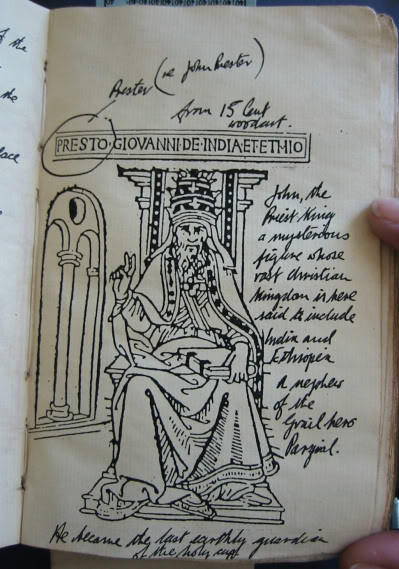 of the
the
place
Prester (ie John Prester)
from 15 Cent
woodcut.
PRESTO·GIOVANNI·DE·INDIA·ET·ETHIO
John, the
Priest King
a mysterious
figure whose
vast Christian
Kingdom is here
said to include
India and
Ethiopia
A nephew
of the
Grail hero
Parzival.
He became the last earthly guardian
of the holy cup.